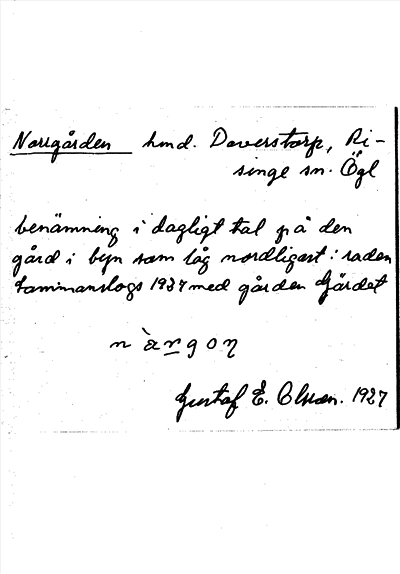 Norrgården hmd. Daverstorp, Ri-
singe sn. Ögl
benämning i dagligt tal på den
gård i byn som låg nordligast i raden
Sammanslogs 1937 med gården Gärdet
n àr̲goŋ
Gustaf E. Olsson. 1927